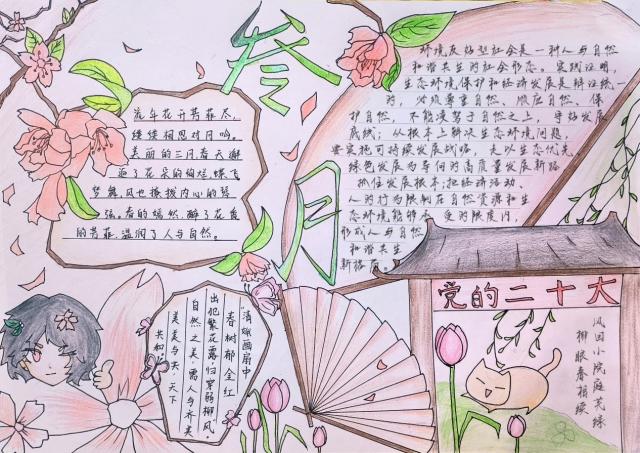 叁月
流年花开芳菲尽,
缕缕相思对月吟,
美丽的三月春天邂
逅了花朵的绚烂,蝶飞
梦舞,风也撩拨内心的琴
弦。春的嫣然,醉了花香
的芳菲,温润了人与自然。
环境友好型社会是一种人与自然
和谐共生的社会形态。实践证明,
生态环境保护和经济发展是辩证统一
的,必须尊重自然、顺应自然、保
护自然,不能凌驾于自然之上,守好发展
底线;从根本上解决生态环境问题
要实施可持续发展战略,走以生态优先
绿色发展为导向的高质量发展新路
抓住发展根本;把经济活动、
人的行为限制在自然资源和生
态环境能够承受的限度内,
形成人与自然
和谐共生
新格局。
清娥画扇中
春树郁金红
出犯繁花露归穿弱柳风。
自然之美,需人与齐美
美美与共,天下
共和
党的二十大
风回小院庭芜绿
柳眼春相续